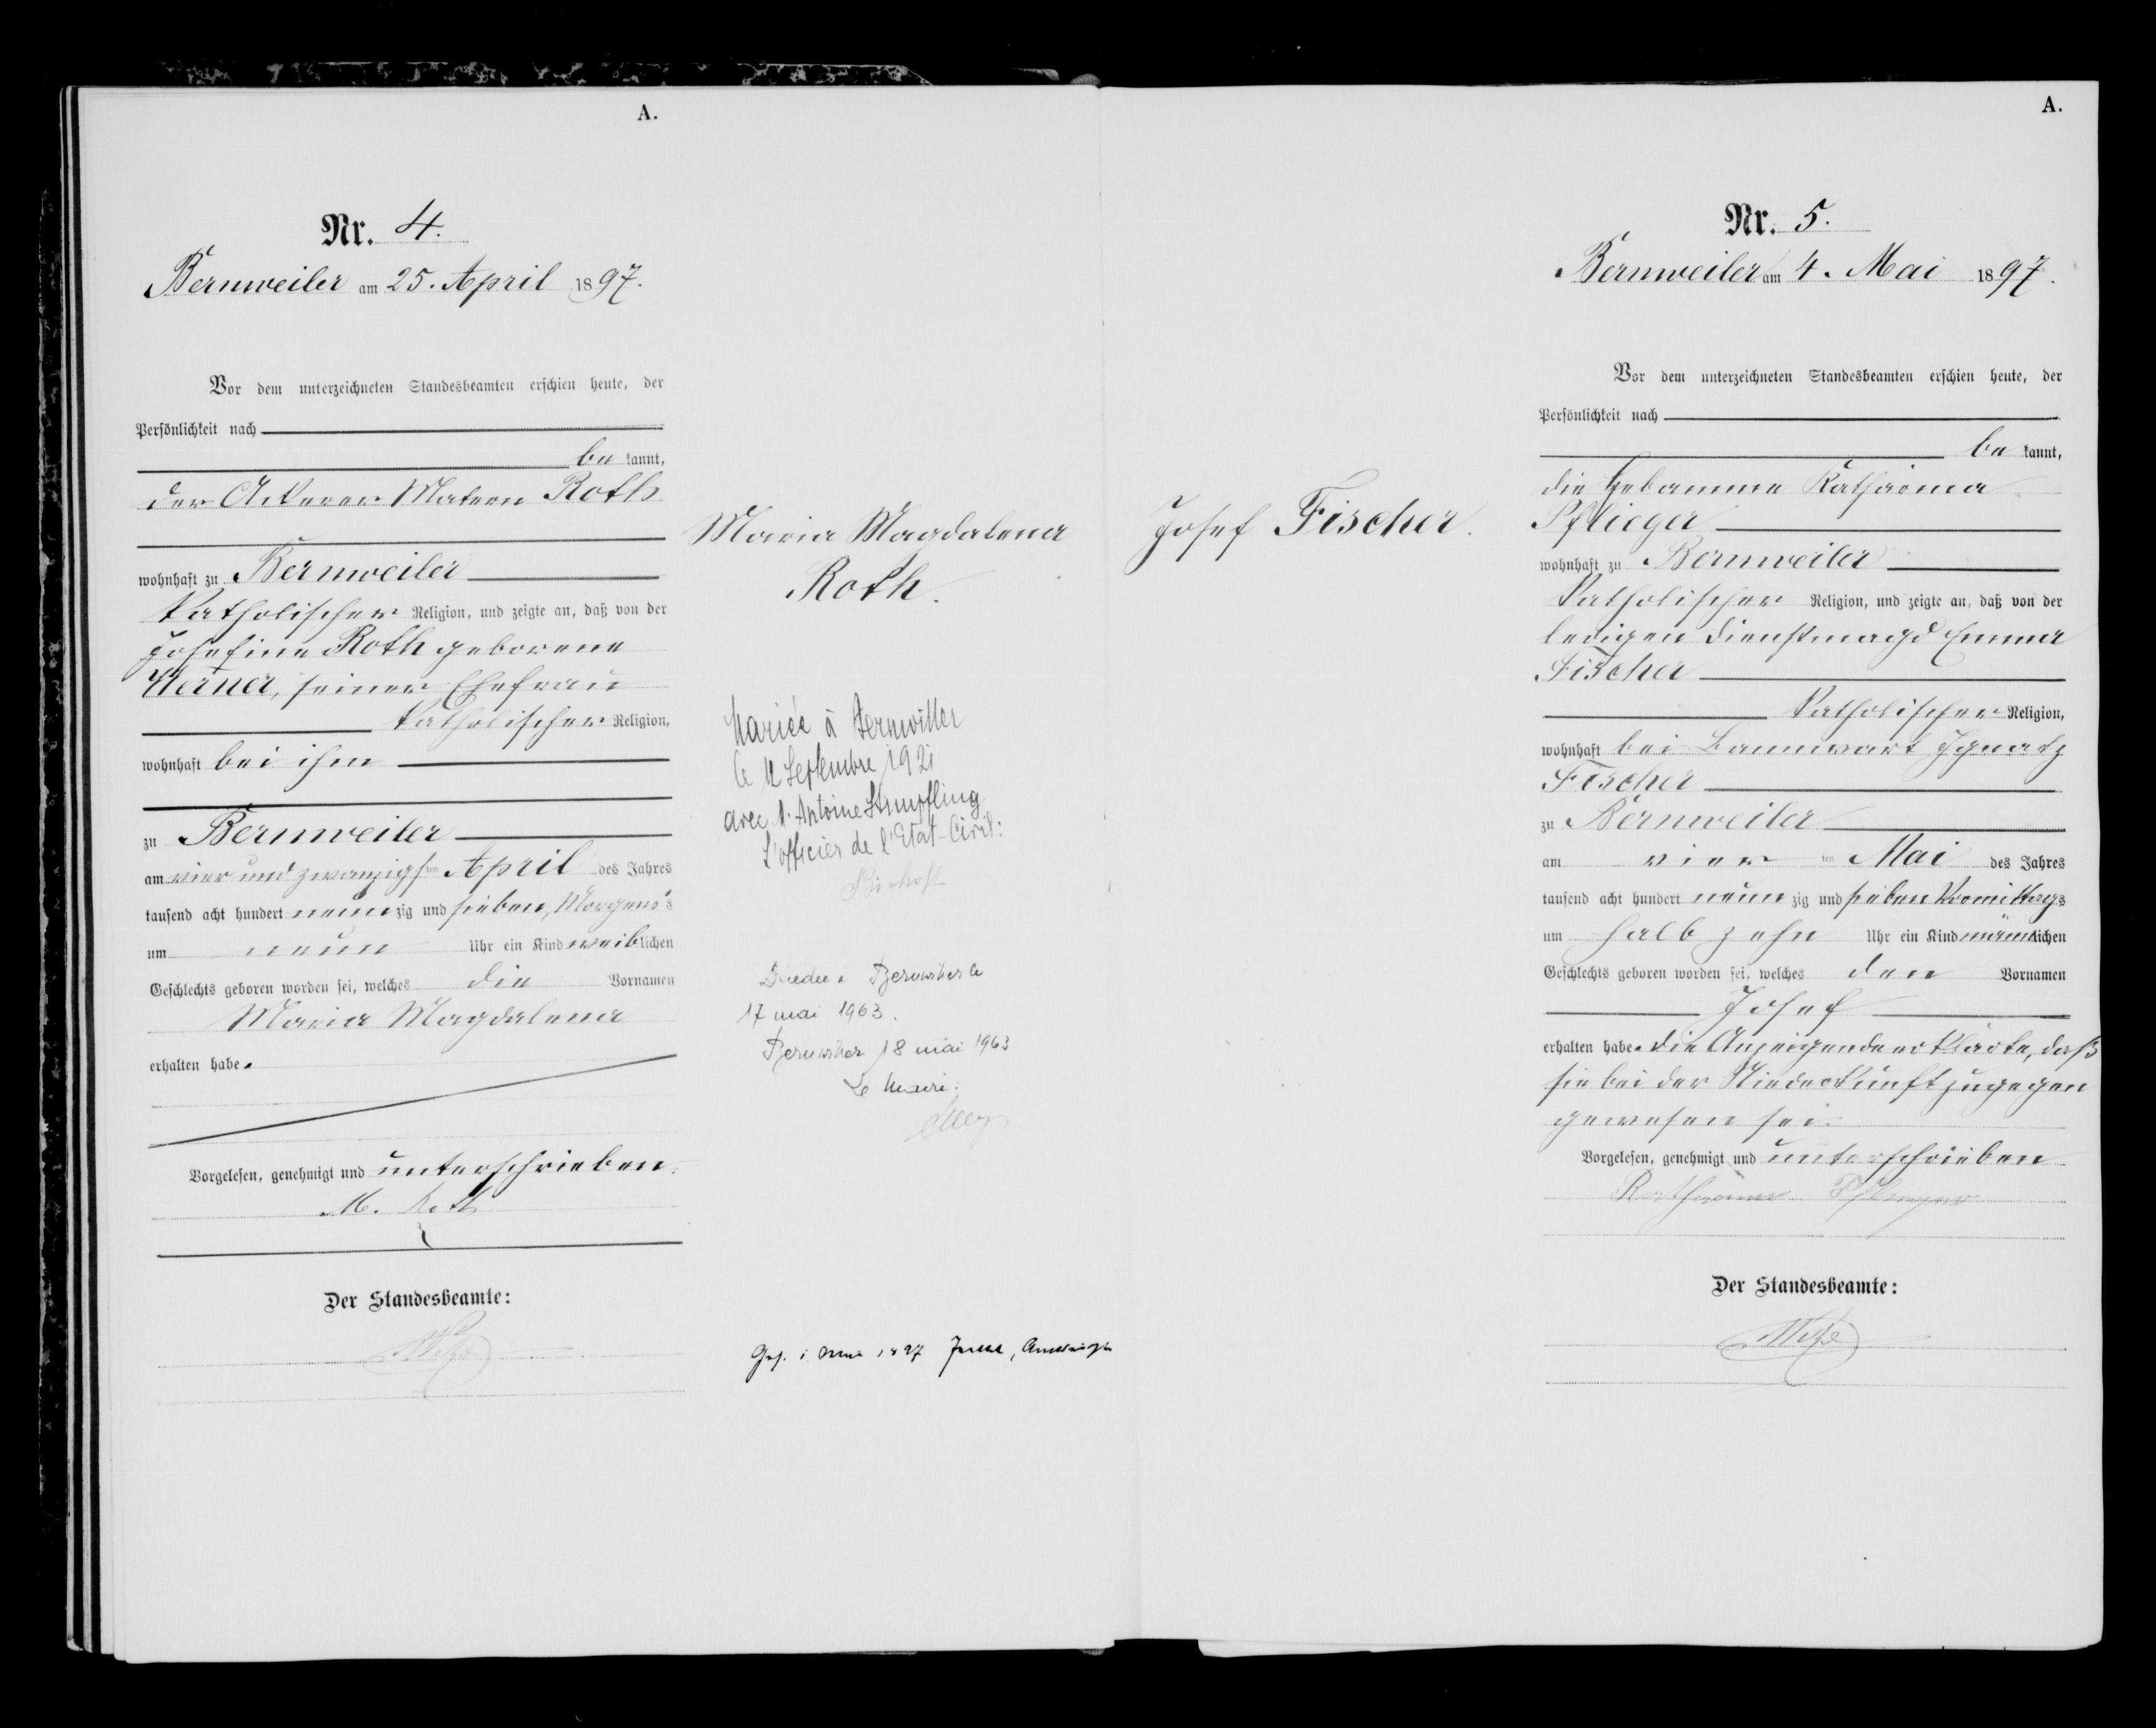 A.
Nr. 4.
Bernweiler am 25. April 1897.
Vor dem unterzeichneten Standesbeamten erschien heute, der
Persönlichkeit nach
be kannt,
der Ackerer Matern Roth
wohnhaft zu Bernweiler
katholischer Religion, und zeigte an, daß von der
Josefine Roth geborene
Werner, seiner Ehefrau
katholischer Religion,
wohnhaft bei ihm
zu Bernweiler
am vier und zwanzigsten April des Jahres
tausend acht hundert neunzig und sieben, Morgens
um neun Uhr ein Kind weiblichen
Geschlechts geboren worden sei, welches die Vornamen
Maria Magdalena
erhalten habe.
Vorgelesen, genehmigt und unterschrieben.
M. Roth
Der Standesbeamte:
Maria Magdalena
Roth.
Mariée à Bernwiller
le 12 Septembre 1921
avec Antoine Stimpfling
L'officier de l'Etat-Civil:
17 mai 1963.
18 mai 1963
Le Maire:
A.
Nr. 5.
Bernweiler am 4. Mai 1897.
Vor dem unterzeichneten Standesbeamten erschien heute, der
Persönlichkeit nach
be kannt,
die Hebamme Katharina
Pflieger
wohnhaft zu Bernweiler
katholischer Religion, und zeigte an, daß von der
ledigen Dienstmagd Emma
Fischer
katholischer Religion,
wohnhaft bei Bannwart Ignatz
Fischer
zu Bernweiler
am vier ten Mai des Jahres
tausend acht hundert neun zig und sieben Vormittags
um halb zehn Uhr ein Kind männlichen
Geschlechts geboren worden sei, welches den Vornamen
Josef
erhalten habe. Die Anzeigende erklärte, daß
sie bei der Niederkunft zugegen
gewesen sei.
Vorgelesen, genehmigt und unterschrieben
Katharina Pflieger
Der Standesbeamte:
Josef Fischer.